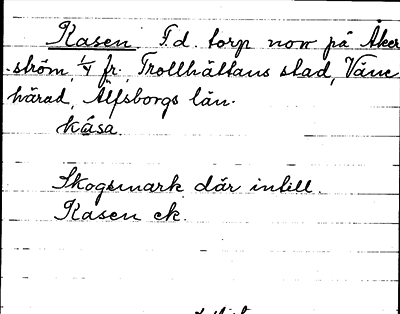 Kasen. F.d. torp norr på Åker
-ström, 1/4 fr. Trollhättans stad, Väne
härad, Älfsborgs län.
kåsa
Skogsmark där intill.
Kasen ek.